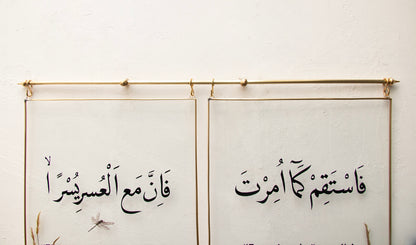 فَاسْتَقِمْ كَمَآ اُمِرْتَ
فَاِنَّ مَعَ الْعُسْرِ يُسْرًا